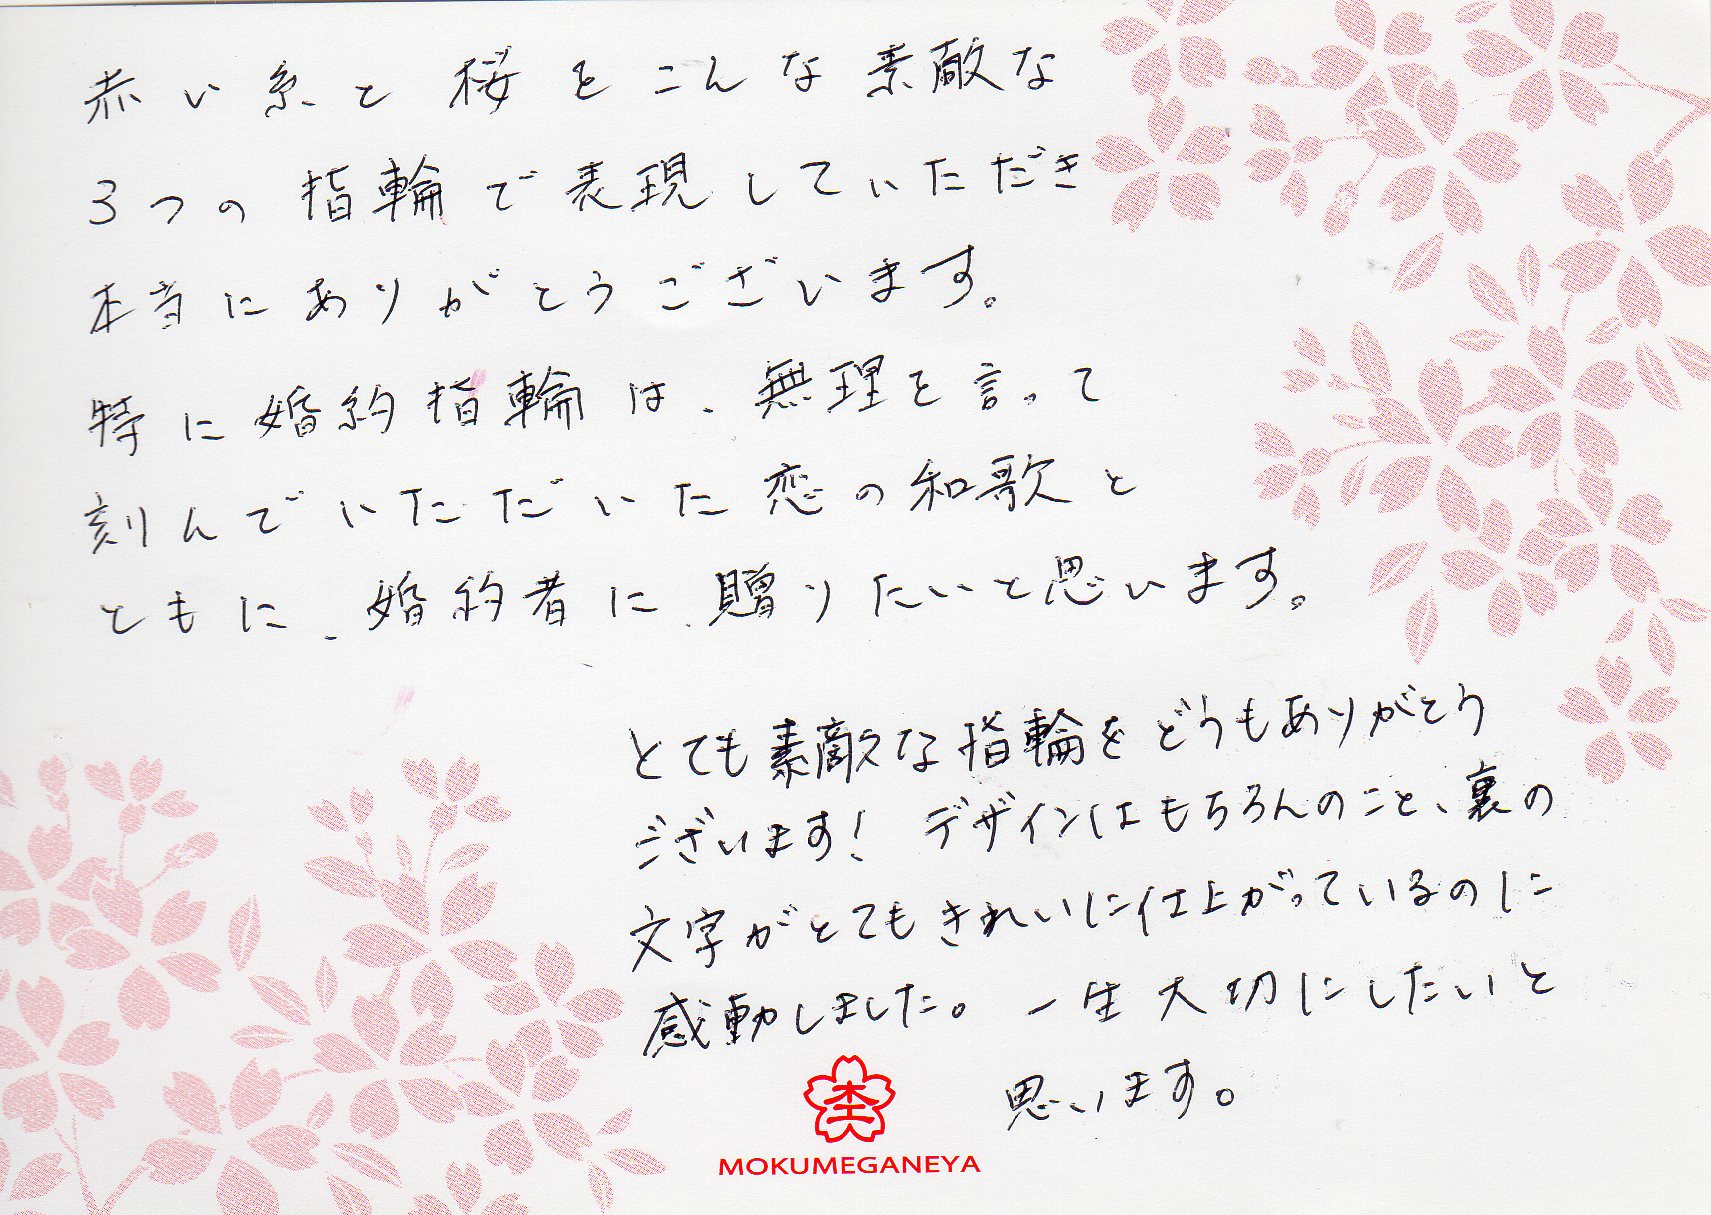 赤い糸と桜をこんな素敵な
3つの指輪で表現していただき
本当にありがとうございます。
特に婚約指輪は、無理を言って
刻んでいただいた恋の和歌と
ともに、婚約者に贈りたいと思います。
とても素敵な指輪をどうもありがとう
ございます! デザインはもちろんのこと、裏の
文字がとてもきれいに仕上がっているのに
感動しました。一生大切にしたいと
思います。
MOKUMEGANEYA